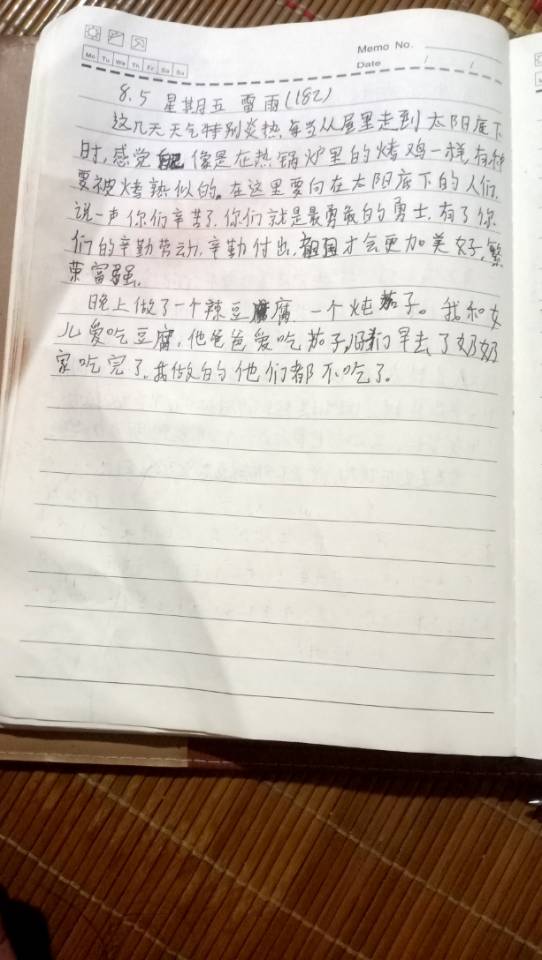 Memo No.
Mo Tu We Th Fr Sa Su
Date / /
8.5 星期五 雷雨(182)
这几天天气特别炎热,每当从屋里走到太阳底下
时,感觉 像是在热锅炉里的烤鸡一样,有种
要被烤熟似的。在这里要向在太阳底下的人们,
说一声你们辛苦了,你们就是最勇敢的勇士,有了你
们的辛勤劳动,辛勤付出,祖国才会更加美好,繁
荣富强。
晚上做了一个辣豆腐 一个炖茄子。我和女
儿爱吃豆腐,他爸爸爱吃茄子, 们早去了奶奶
家吃完了,我做的他们都不吃了。